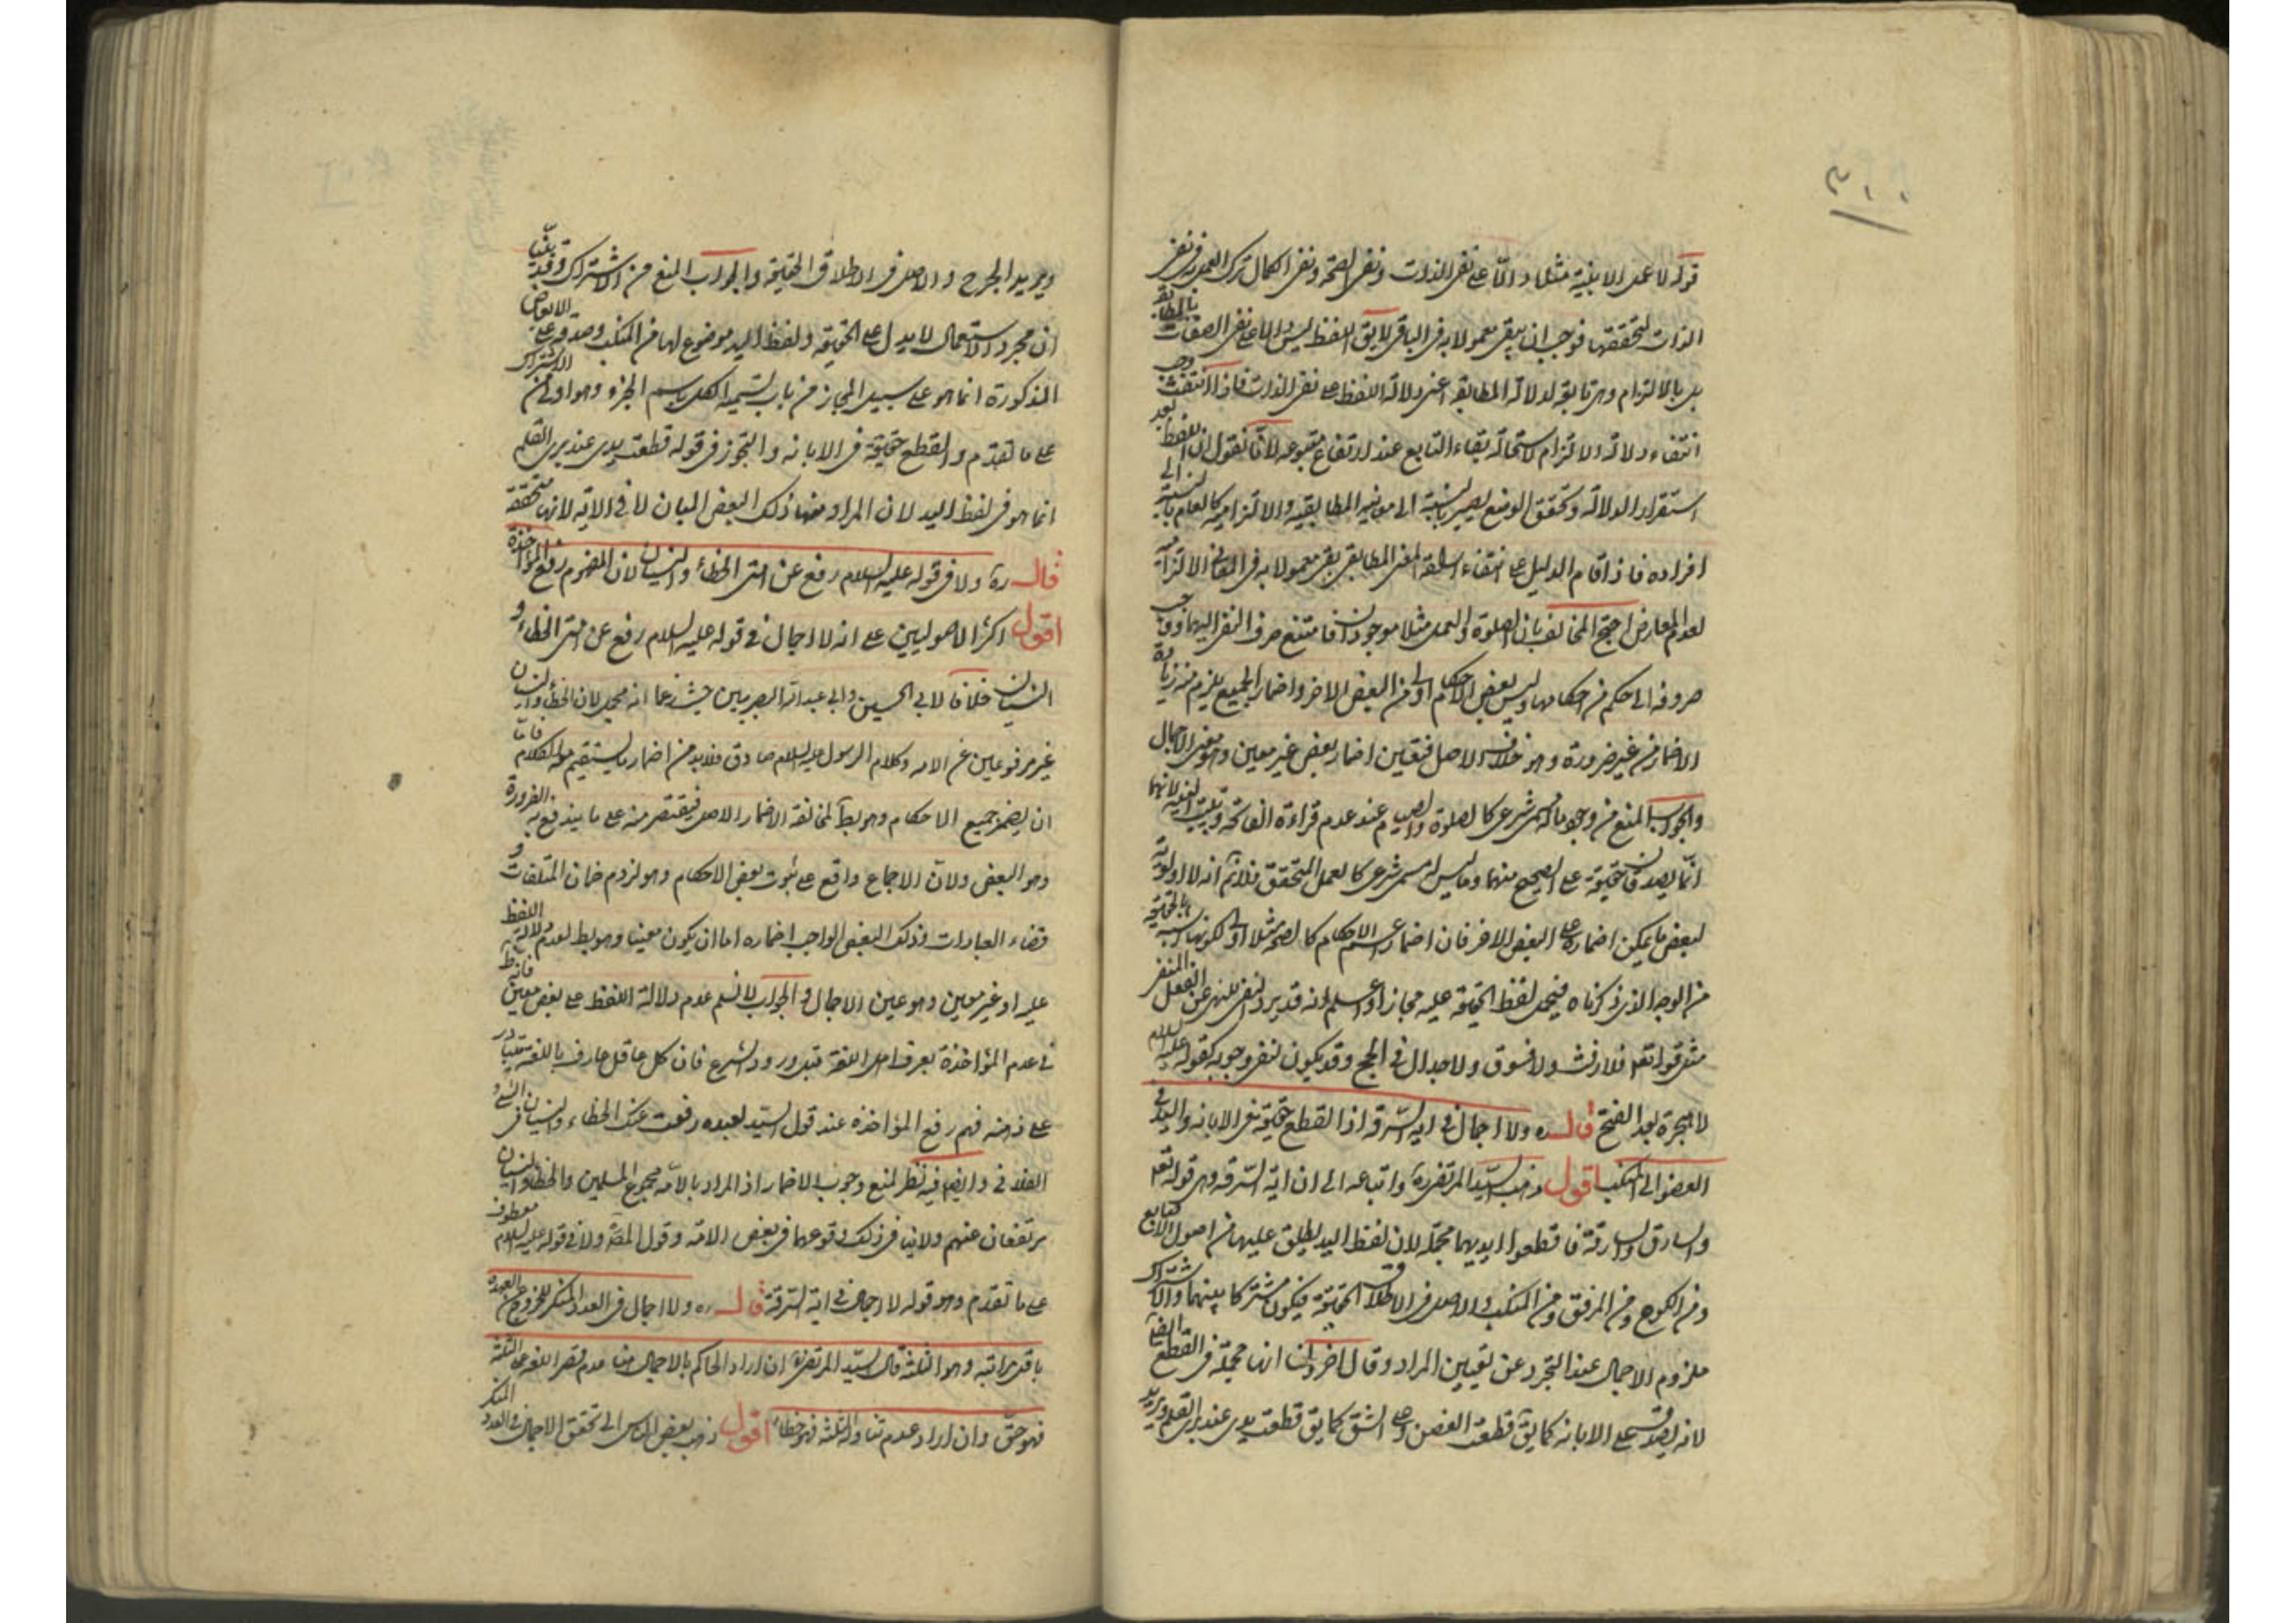 قوله لا عمل الا بنية مثلا دالا على نفي الذات ونفي الصحة ونفي الكمال ترك العمل به في نفي
الذات لتحققها فوجب ان يبقى معمولا به في الباقي لا يق اللفظ ليس دالا على نفي الصفات بالمطابقة
بل بالالتزام وهي تابعة لدلالة المطابقة اعني دلالة اللفظ على نفي الذات فاذا انتفت وجب
انتفاء دلالة الالتزام لاستحالة بقاء التابع عند ارتفاع متبوعه لانا نقول ان اللفظ بعد
استقرار الدلالة وتحقق الوضع يصير بالنسبة الى معانيه المطابقية والالتزامية كالعام بالنسبة الى
افراده فاذا قام الدليل على انتفاء ارادة المعنى المطابقي بقي معمولا به في المعاني الالتزامية
لعدم المعارض احتج المخالف بان الصلوة والعمل مثلا موجودان فامتنع صرف النفي اليهما ووجب
صرفه الى حكم من احكامها وليس بعض الاحكام اولى من البعض الاخر واضمار الجميع يلزم منه زيادة
الاضمار من غير ضرورة وهو خلاف الاصل فتعين اضمار بعض غير معين وهو معنى الاجمال
والجواب المنع من وجود ما له مسمى شرعي كالصلوة والصيم عند عدم قراءة الفاتحة وتبييت النية لانهما
انما يصدقان حقيقة على الصحيح منهما وما ليس له مسمى شرعي كالعمل المتحقق فلا نم انه لا اولوية
لبعض ما يمكن اضماره على البعض الاخر فان اضمار اعم الاحكام كالصحة مثلا اولى لكونها اشبه بالحقيقة
من الوجه الذي ذكرناه فيحمل لفظ الحقيقة عليه مجازا واعلم انه قد يرد النفي للنهي عن الفعل المنفي
مثل قوله تعم فلا رفث ولا فسوق ولا جدال في الحج وقد يكون لنفي وجوبه كقوله عليه السلام
لا هجرة بعد الفتح قال ره ولا اجمال في اية السرقة اذ القطع حقيقة في الابانه واليد في
العضو الى المنكب اقول ذهب السيد المرتضى ره واتباعه الى ان اية السرقة وهي قوله تعم
والسارق والسارقة فاقطعوا ايديهما مجملة لان لفظ اليد يطلق عليها من اصول الاصابع
ومن الكوع ومن المرفق ومن المنكب والاصل في الاطلاق الحقيقة فيكون مشتركا بينهما والاشتراك
ملزوم الاجمال عند التجرد عن تعيين المراد وقال اخرون انها مجملة في القطع ايضا
لانه يصدق على الابانه كما يق قطعت الغصن وعلى الشق كما يق قطعت يدي عند بري القلم ويريد
ويريد الجرح والاصل في الاطلاق الحقيقة والجواب المنع من الاشتراك وقد بينا
ان مجرد الاستعمال لا يدل على الحقيقة ولفظ اليد موضوع لها من المنكب وصدقه على الابعاض
المذكورة انما هو على سبيل المجاز من باب تسمية الكل باسم الجزء وهو اولى من الاشتراك
على ما تقدم والقطع حقيقة في الابانه والتجوز في قوله قطعت يدي عند بري القلم
انما هو في لفظ اليد لان المراد منها ذلك البعض المبان لا في الابانه لانها متحققة
قال ره ولا في قوله عليه السلام رفع عن امتي الخطاء والنسيان لان المفهوم رفع المؤاخذة
اقول اكثر الاصوليين على انه لا اجمال في قوله عليه السلام رفع عن امتي الخطاء و
النسيان خلافا لابي الحسين وابي عبد الله البصريين حيث زعما انه مجمل لان الخطاء والنسيان
غير مرفوعين عن الامه وكلام الرسول عليه السلام صادق فلابد من اضمار ليستقيم به الكلام فاما
ان يضمر جميع الاحكام وهو بط لمخالفة الاضمار الاصل فيقتصر منه على ما يندفع به الضرورة
وهو البعض ولان الاجماع واقع على ثبوت بعض الاحكام وهو لزوم ضمان المتلفات و
قضاء العبادات وذلك البعض الواجب اضماره اما ان يكون معينا وهو بط لعدم دلالة اللفظ
عليه او غير معين وهو عين الاجمال والجواب لا نسلم عدم دلالة اللفظ على بعض معين فانه ظ
في عدم المؤاخذة بعرف اهل اللغة قبل ورود الشرع فان كل عاقل عارف باللغة يتبادر
على ذهنه فهم رفع المؤاخذة عند قول السيد لعبده رفعت عنك الخطاء والنسيان في الشيء
الفلاني وايضم فيه نظر لمنع وجوب الاضمار اذ المراد بالامة مجموع المسلمين والخطاء والنسيان
مرتفعان عنهم ولا ينافي ذلك وقوعهما في بعض الامة وقول المصنف ولا في قوله عليه السلام معطوف
على ما تقدم وهو قوله لا اجمال في اية السرقة قال ره ولا اجمال في العدد المنكر للخروج عن العهدة
باقل مراتبه وهو الثلثة قال السيد المرتضى ره ان اراد الحاكم بالاجمال هنا عدم قصر اللفظ على الثلثة
فهو حق وان اراد عدم تناوله الثلثة فهو خطاء اقول ذهب بعض الناس الى تحقق الاجمال في العدد المنكر